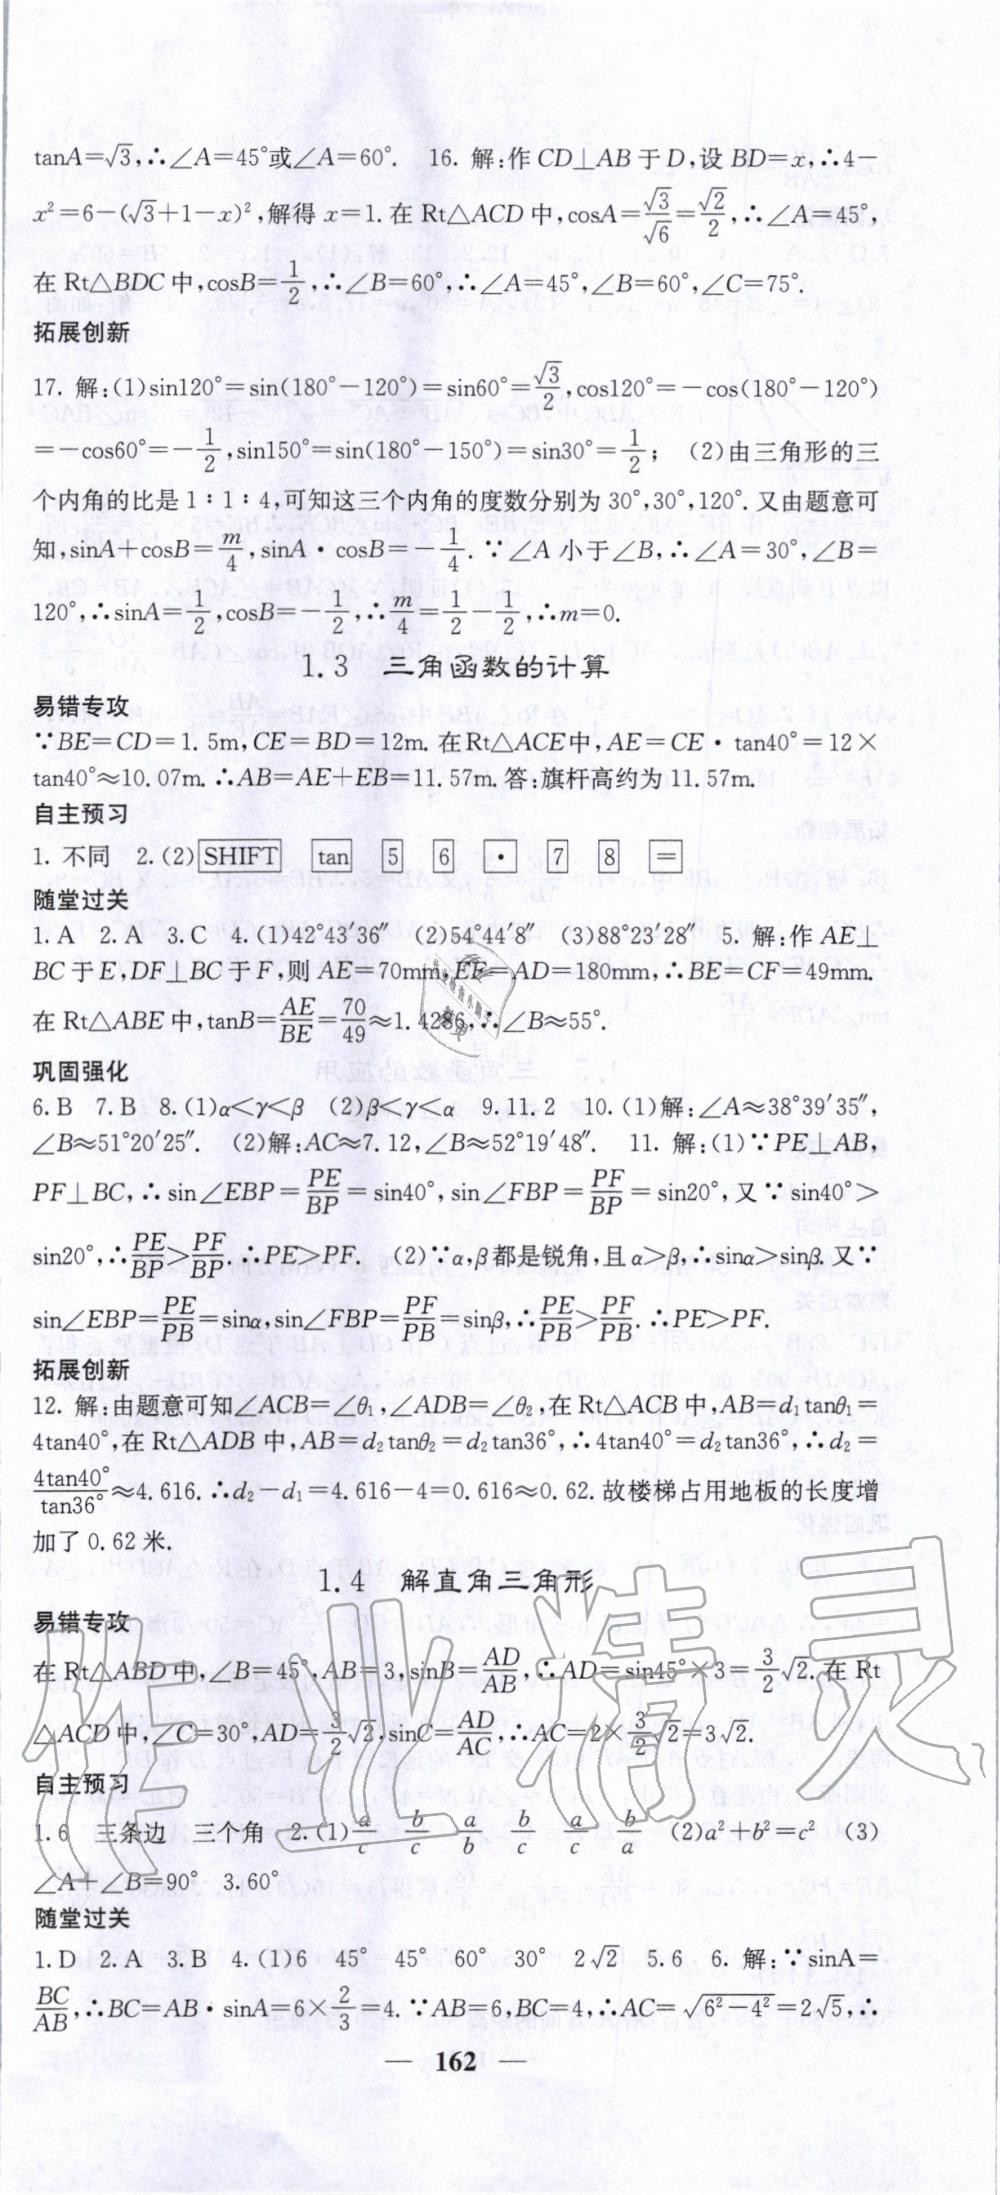 tanA=√3,∴∠A=45°或∠A=60°. 16. 解:作 CD⊥AB 于 D,设 BD=x,∴4-
x²=6-(√3+1-x)²,解得 x=1. 在 Rt△ACD 中,cosA=√3/√6=√2/2,∴∠A=45°,
在 Rt△BDC 中,cosB=1/2,∴∠B=60°,∴∠A=45°,∠B=60°,∠C=75°.
拓展创新
17. 解:(1)sin120°=sin(180°-120°)=sin60°=√3/2,cos120°=-cos(180°-120°)
=-cos60°=-1/2,sin150°=sin(180°-150°)=sin30°=1/2; (2)由三角形的三
个内角的比是 1∶1∶4,可知这三个内角的度数分别为 30°,30°,120°. 又由题意可
知,sinA+cosB=m/4,sinA·cosB=-1/4. ∵∠A 小于∠B,∴∠A=30°,∠B=
120°,∴sinA=1/2,cosB=-1/2,∴m/4=1/2-1/2,∴m=0.
1.3 三角函数的计算
易错专攻
∵BE=CD=1.5m,CE=BD=12m. 在Rt△ACE中,AE=CE·tan40°=12×
tan40°≈10.07m. ∴AB=AE+EB=11.57m. 答:旗杆高约为 11.57m.
自主预习
1. 不同 2. (2) SHIFT tan 5 6 · 7 8 =
随堂过关
1. A 2. A 3. C 4. (1)42°43′36″ (2)54°44′8″ (3)88°23′28″ 5. 解:作 AE⊥
BC 于 E,DF⊥BC 于 F,则 AE=70mm,EF=AD=180mm,∴BE=CF=49mm.
在 Rt△ABE 中,tanB=AE/BE=70/49≈1.4286,∴∠B≈55°.
巩固强化
6. B 7. B 8. (1)α<γ<β (2)β<γ<α 9. 11.2 10. (1)解:∠A≈38°39′35″,
∠B≈51°20′25″. (2)解:AC≈7.12,∠B≈52°19′48″. 11. 解:(1)∵PE⊥AB,
PF⊥BC,∴sin∠EBP=PE/BP=sin40°,sin∠FBP=PF/BP=sin20°,又∵sin40°>
sin20°,∴PE/BP>PF/BP. ∴PE>PF. (2)∵α,β都是锐角,且α>β,∴sinα>sinβ. 又∵
sin∠EBP=PE/PB=sinα,sin∠FBP=PF/PB=sinβ,∴PE/PB>PF/PB. ∴PE>PF.
拓展创新
12. 解:由题意可知∠ACB=∠θ₁,∠ADB=∠θ₂,在 Rt△ACB 中,AB=d₁tanθ₁=
4tan40°,在 Rt△ADB 中,AB=d₂tanθ₂=d₂tan36°,∴4tan40°=d₂tan36°,∴d₂=
4tan40°/tan36°≈4.616. ∴d₂-d₁=4.616-4=0.616≈0.62. 故楼梯占用地板的长度增
加了 0.62 米.
1.4 解直角三角形
易错专攻
在 Rt△ABD中,∠B=45°,AB=3,sinB=AD/AB,∴AD=sin45°×3=3/2√2. 在 Rt
△ACD 中,∠C=30°,AD=3/2√2,sinC=AD/AC,∴AC=2×3/2√2=3√2.
自主预习
1. 6 三条边 三个角 2. (1)a/c b/c a/b b/c a/c b/a (2)a²+b²=c² (3)
∠A+∠B=90° 3. 60°
随堂过关
1. D 2. A 3. B 4. (1)6 45° 45° 60° 30° 2√2 5. 6 6. 解:∵sinA=
BC/AB,∴BC=AB·sinA=6×2/3=4. ∵AB=6,BC=4,∴AC=√(6²-4²)=2√5,∴
— 162 —
作业精灵